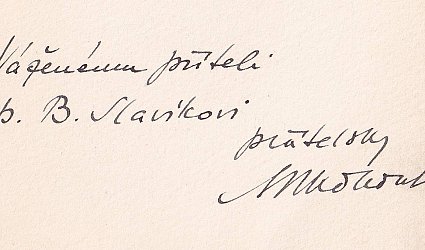 Váženému příteli
p. B. Slavíkovi
přátelsky